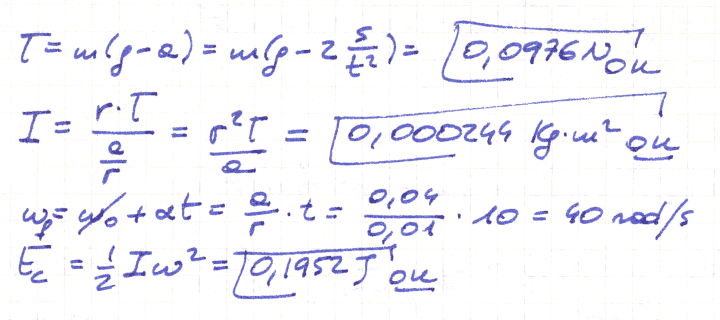 T = m(g-a) = m(g - 2 s/t²) = 0,0976 N OK
I = r·T / (a/r) = r²T/a = 0,000244 Kg·m² OK
ωf = ω0 + αt = a/r · t = 0,04/0,01 · 10 = 40 rad/s
Ec = 1/2 I ω² = 0,1952 J OK